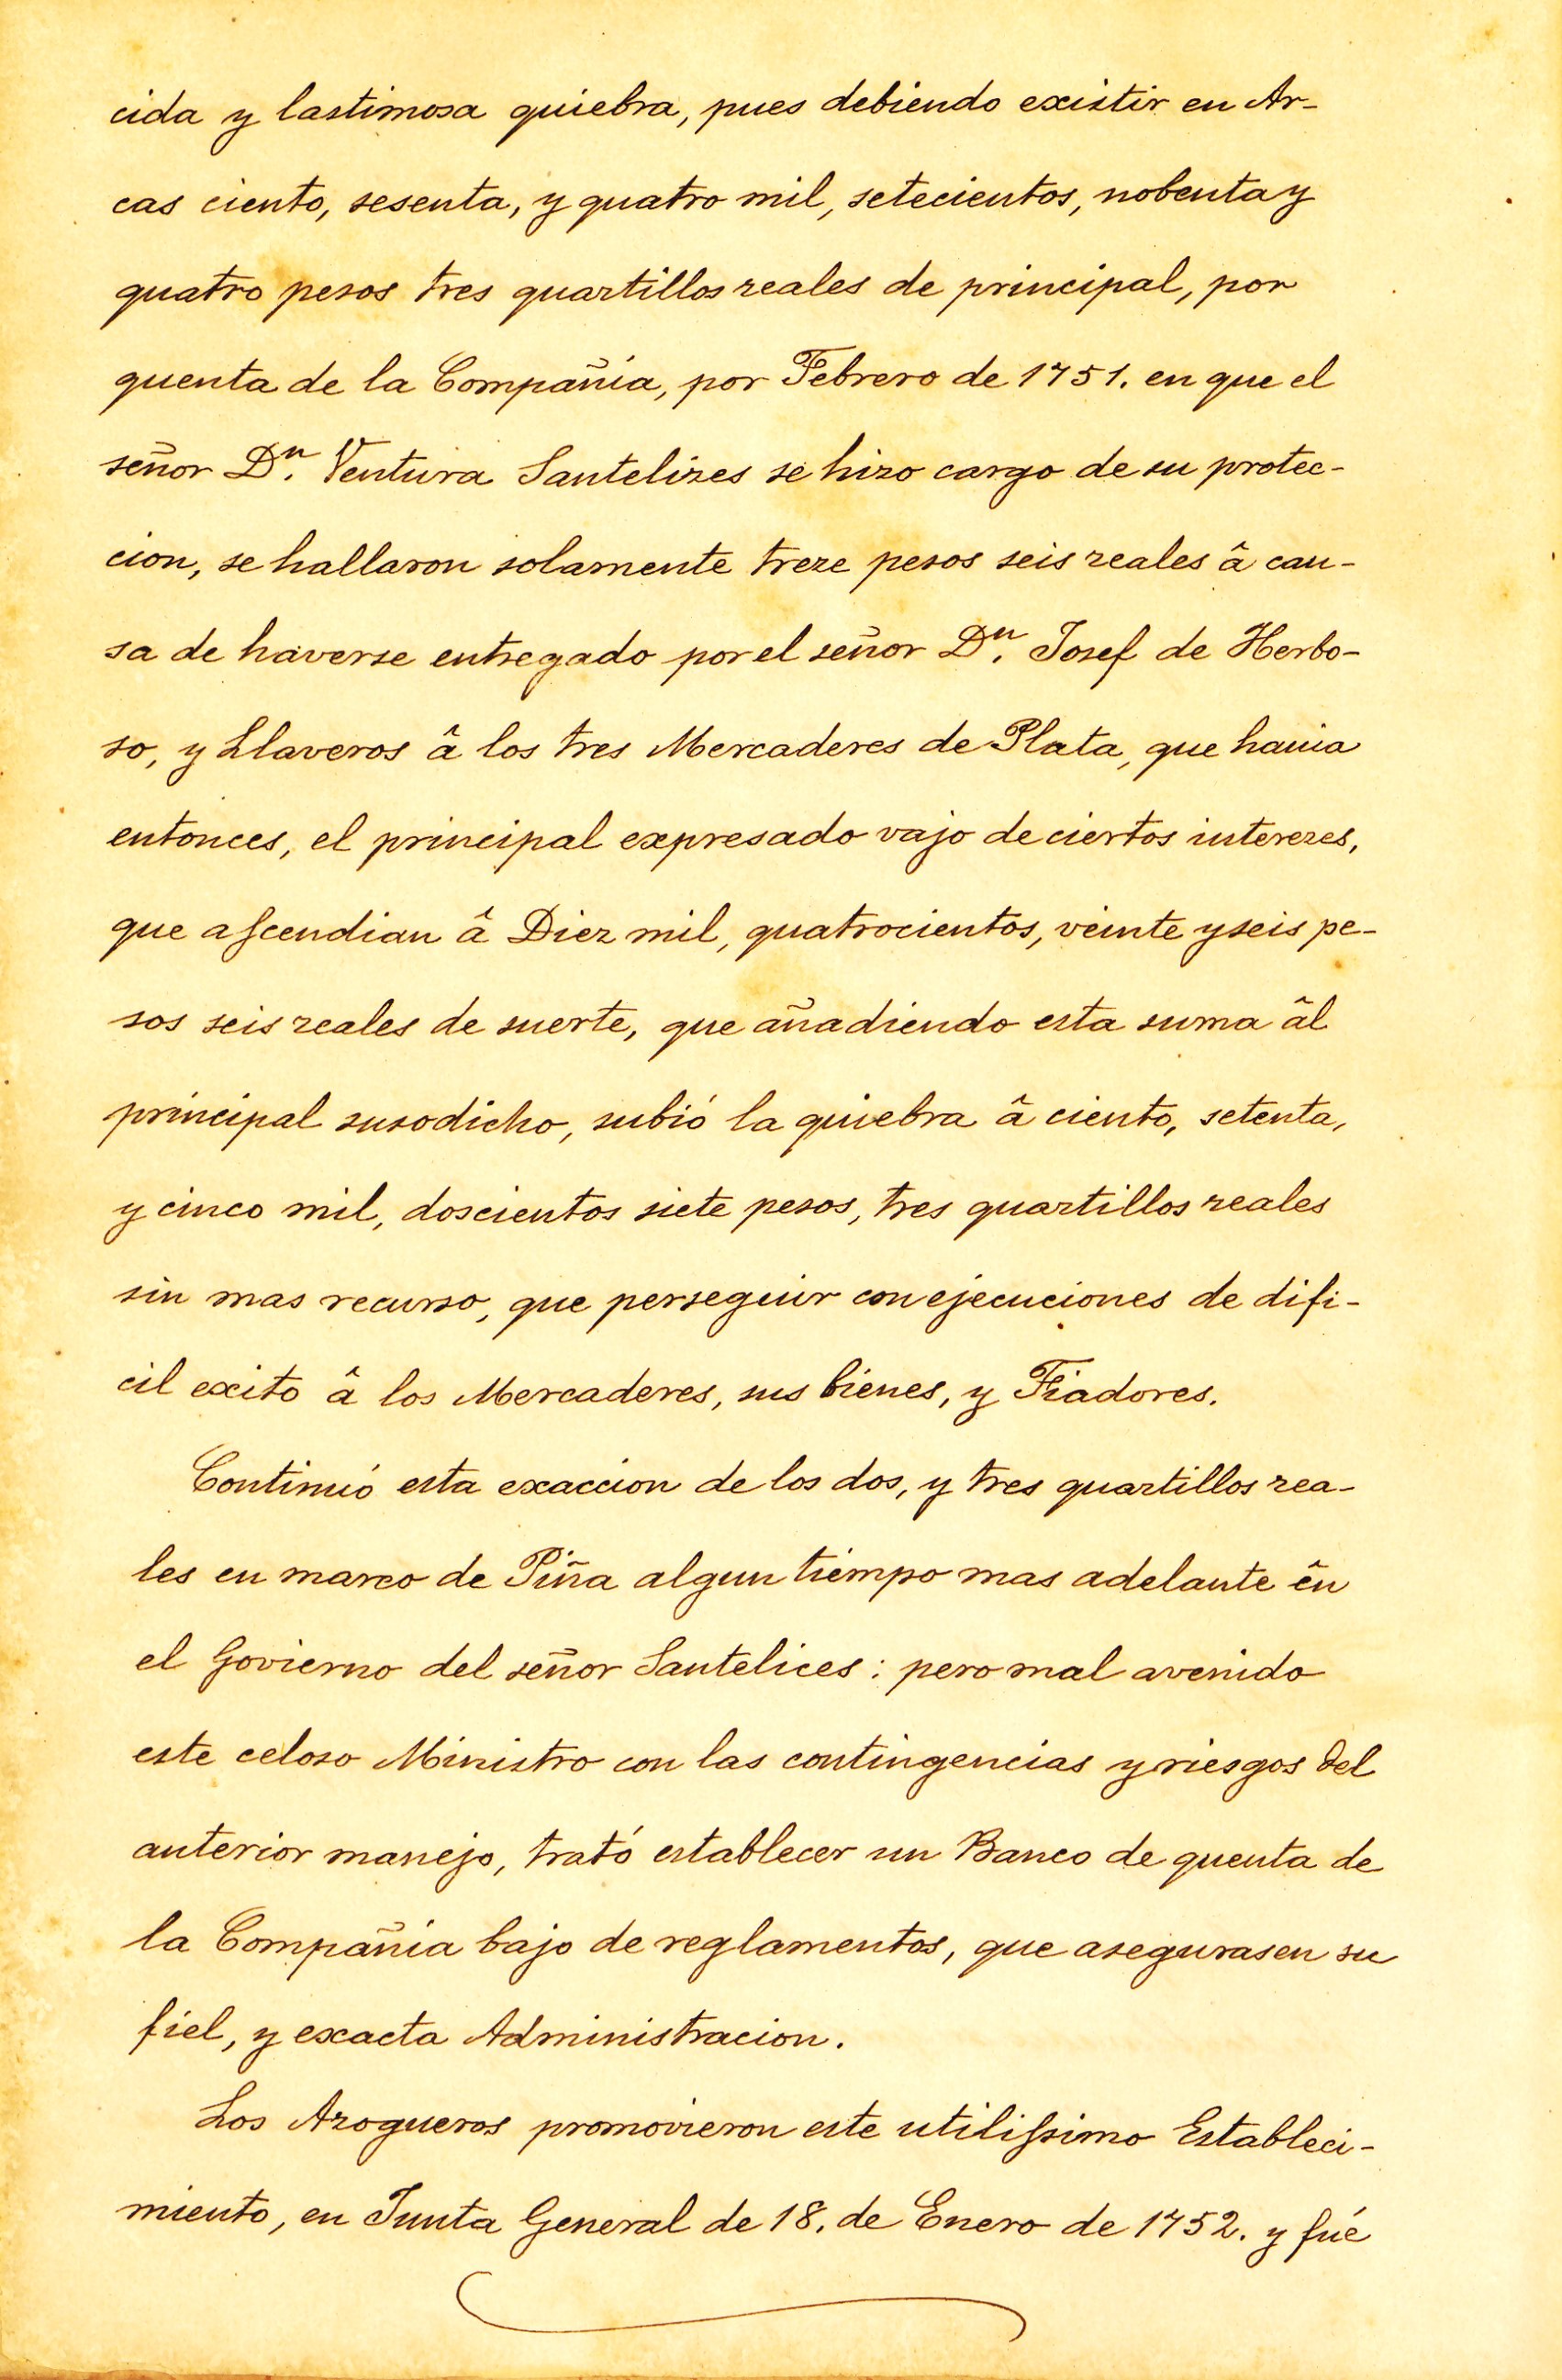 cida y lastimosa quiebra, pues debiendo existir en Ar-
cas ciento, sesenta, y quatro mil, setecientos, nobenta y
quatro pesos tres quartillos reales de principal, por
quenta de la Compañia, por Febrero de 1751. en que el
señor Dⁿ. Ventura Santelizes se hizo cargo de su protec-
cion, se hallaron solamente treze pesos seis reales â cau-
sa de haverse entregado por el señor Dⁿ. Josef de Herbo-
so, y Llaveros â los tres Mercaderes de Plata, que hauia
entonces, el principal expresado vajo de ciertos interezes,
que aſcendian â Diez mil, quatrocientos, veinte y seis pe-
sos seis reales de suerte, que añadiendo esta suma âl
principal susodicho, subió la quiebra â ciento, setenta,
y cinco mil, doscientos siete pesos, tres quartillos reales
sin mas recurso, que perseguir con ejecuciones de difi-
cil exito â los Mercaderes, sus bienes, y Fiadores.
Continuó esta exaccion de los dos, y tres quartillos rea-
les en marco de Piña algun tiempo mas adelante ên
el Govierno del señor Santelices: pero mal avenido
este celoso Ministro con las contingencias y riesgos del
anterior manejo, trató establecer un Banco de quenta de
la Compañia bajo de reglamentos, que asegurasen su
fiel, y exacta Administracion.
Los Azogueros promovieron este utiliſsimo Estableci-
miento, en Junta General de 18. de Enero de 1752. y fúe